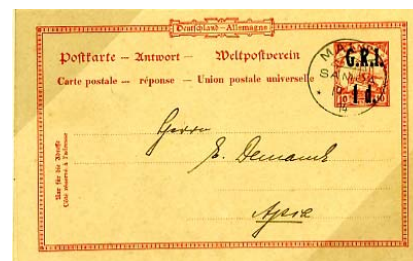 Deutschland – Allemagne
Postkarte – Antwort – Weltpostverein
Carte postale – réponse – Union postale universelle
G.R.I.
1 d.
Nur für die Adresse
Côté réservé à l'adresse
Herrn
E. Demandt
Apia